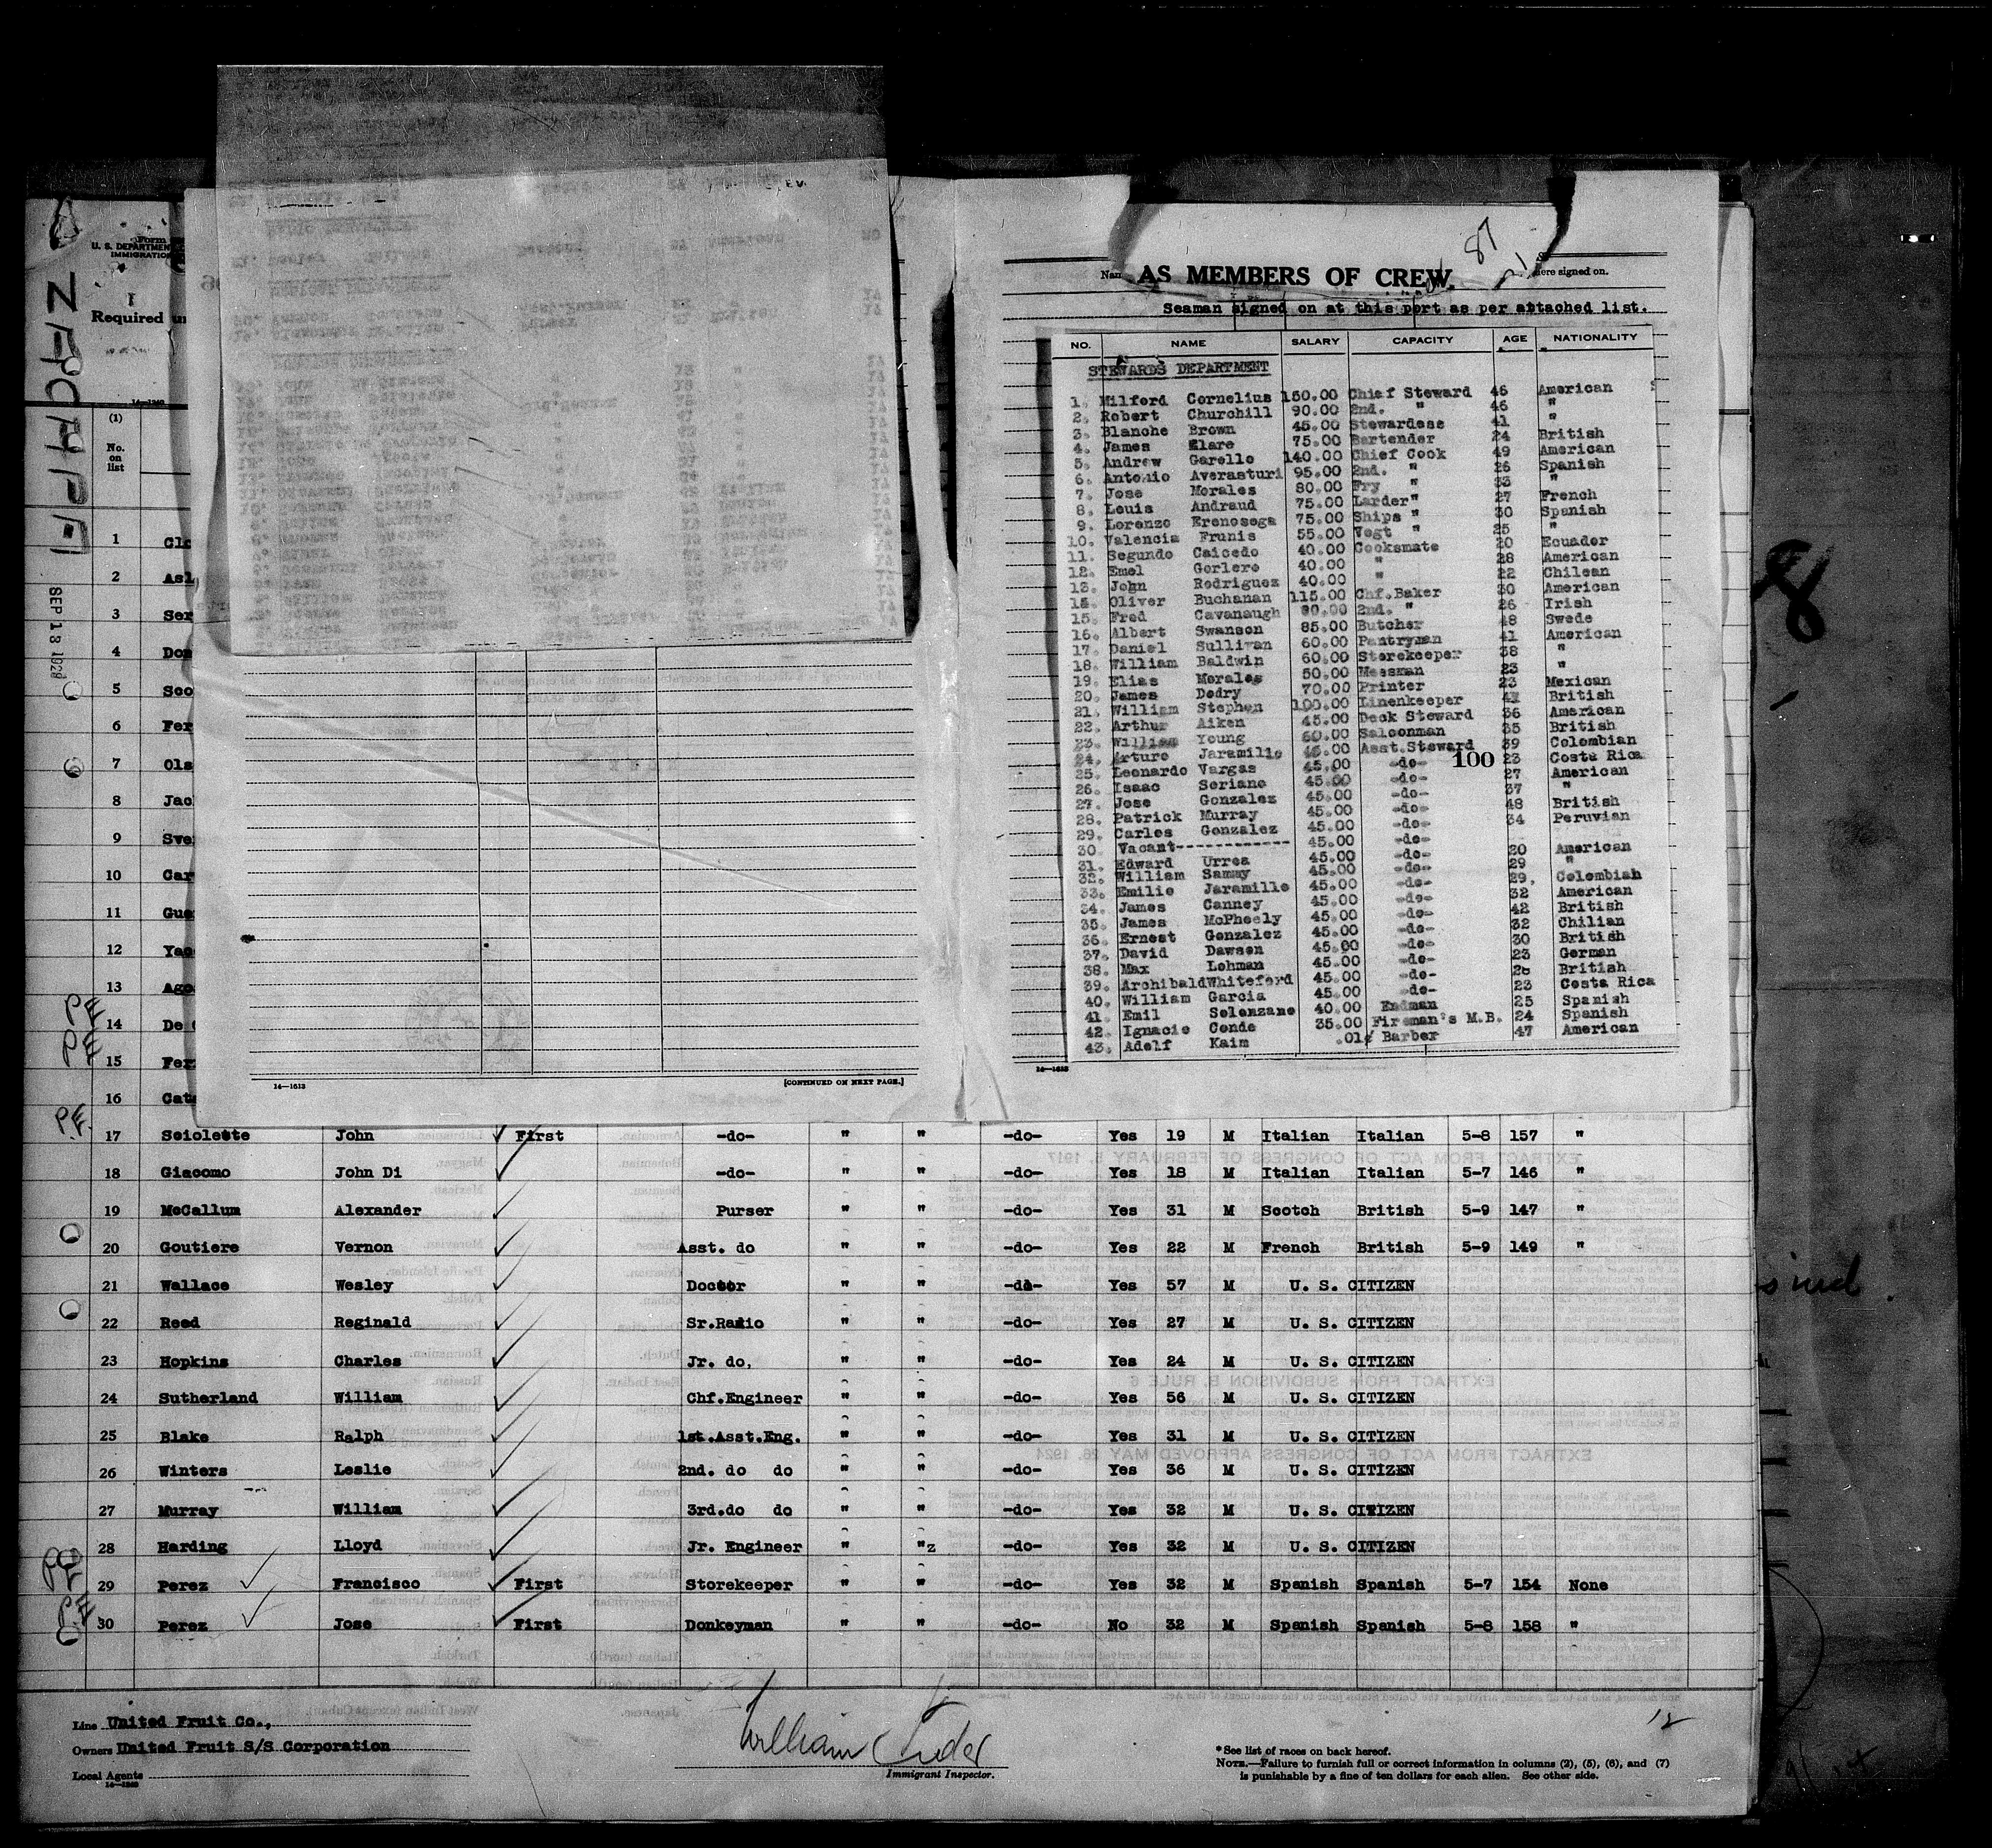 Form
U. S. DEPARTMENT
IMMIGRATION
Required
14—1240
ZACAPA
SEP 13 1928
(1)
No. on list
1 Clo
2 Asl
3 Ser
4 Dom
5 Sco
6 Fer
7 Ols
8 Jac
9 Sve
10 Car
11 Gue
12 Yac
13 Ago
PE 14 De
PE 15 Fer
16 Cata
14—1613 [CONTINUED ON NEXT PAGE.]
87
21
Nam AS MEMBERS OF CREW. ere signed on.
Seaman signed on at this port as per attached list.
NO. NAME SALARY CAPACITY AGE NATIONALITY
STEWARDS DEPARTMENT
1. Milford Cornelius 150.00 Chief Steward 46 American
2. Robert Churchill 90.00 2nd. " 46 "
3. Blanche Brown 45.00 Stewardess 41 "
4. James Elare 75.00 Bartender 24 British
5. Andrew Garello 140.00 Chief Cook 49 American
6. Antonio Averasturi 95.00 2nd. " 26 Spanish
7. Jose Morales 80.00 Fry " 33 "
8. Louis Andraud 75.00 Larder" 27 French
9. Lorenzo Erenosega 75.00 Ships " 30 Spanish
10. Valencia Frunis 55.00 Vegt " 25 "
11. Segundo Caicedo 40.00 Cooksmate 20 Ecuador
12. Emel Gorlero 40.00 " 28 American
13. John Rodriguez 40.00 " 22 Chilean
14. Oliver Buchanan 115.00 Chf.Baker 30 American
15. Fred Cavanaugh 90.00 2nd. " 26 Irish
16. Albert Swanson 85.00 Butcher 48 Swede
17. Daniel Sullivan 60.00 Pantryman 41 American
18. William Baldwin 60.00 Storekeeper 38 "
19. Elias Morales 50.00 Messman 23 "
20. James Dedry 70.00 Printer 23 Mexican
21. William Stephen 100.00 Linenkeeper British
22. Arthur Aiken 45.00 Deck Steward 36 American
23. William Young 60.00 Saloonman 35 British
24. Arturo Jaramillo 45.00 Asst.Steward 39 Colombian
25. Leonardo Vargas 45.00 -do- 100 23 Costa Rica
26. Isaac Soriano 45.00 -do- 27 American
27. Jose Gonzalez 45.00 -do- 37 "
28. Patrick Murray 45.00 -do- 48 British
29. Carlos Gonzalez 45.00 -do- 34 Peruvian
30 Vacant------------ 45.00 -do-
31. Edward Urrea 45.00 -do- 20 American
32. William Sammy 45.00 -do- 29 "
33. Emilio Jaramillo 45.00 -do- 29, Colombian
34. James Canney 45.00 -do- 32 American
35. James McPheely 45.00 -do- 42 British
36. Ernest Gonzalez 45.00 -do- 32 Chilian
37. David Dawson 45.00 -do- 30 British
38. Max Lehman 45.00 -do- 23 German
39. Archibald Whiteford 45.00 -do- 26 British
40. William Garcia 45.00 -do- 23 Costa Rica
41. Emil Solenzano 40.00 Endman 25 Spanish
42. Ignacio Conde 35.00 Fireman's M.B. 24 Spanish
43. Adolf Kaim .01¢ Barber 47 American
14—1613
8
PE 17 Sciolette John First -do- " " -do- Yes 19 M Italian Italian 5-8 157 "
18 Giacomo John Di -do- " " -do- Yes 18 M Italian Italian 5-7 146 "
19 McCallum Alexander Purser " " -do- Yes 31 M Scotch British 5-9 147 "
20 Goutiere Vernon Asst. do " " -do- Yes 22 M French British 5-9 149 "
21 Wallace Wesley Doctor " " -do- Yes 57 M U. S. CITIZEN
22 Reed Reginald Sr.Radio " " -do- Yes 27 M U. S. CITIZEN
23 Hopkins Charles Jr. do, " " -do- Yes 24 M U. S. CITIZEN
24 Sutherland William Chf.Engineer " " -do- Yes 56 M U. S. CITIZEN
25 Blake Ralph 1st.Asst.Eng. " " -do- Yes 31 M U. S. CITIZEN
26 Winters Leslie 2nd. do do " " -do- Yes 36 M U. S. CITIZEN
27 Murray William 3rd.do do " " -do- Yes 32 M U. S. CITIZEN
28 Harding Lloyd Jr. Engineer " "z -do- Yes 32 M U. S. CITIZEN
PE 29 Perez Francisco First Storekeeper " " -do- Yes 32 M Spanish Spanish 5-7 154 None
PE 30 Perez Jose First Donkeyman " " -do- No 32 M Spanish Spanish 5-8 158 "
12
Line United Fruit Co.,
Owners United Fruit S/S Corporation
Local Agents
14—1240
William
Immigrant Inspector.
* See list of races on back hereof.
NOTE.—Failure to furnish full or correct information in columns (2), (5), (6), and (7)
is punishable by a fine of ten dollars for each alien. See other side.